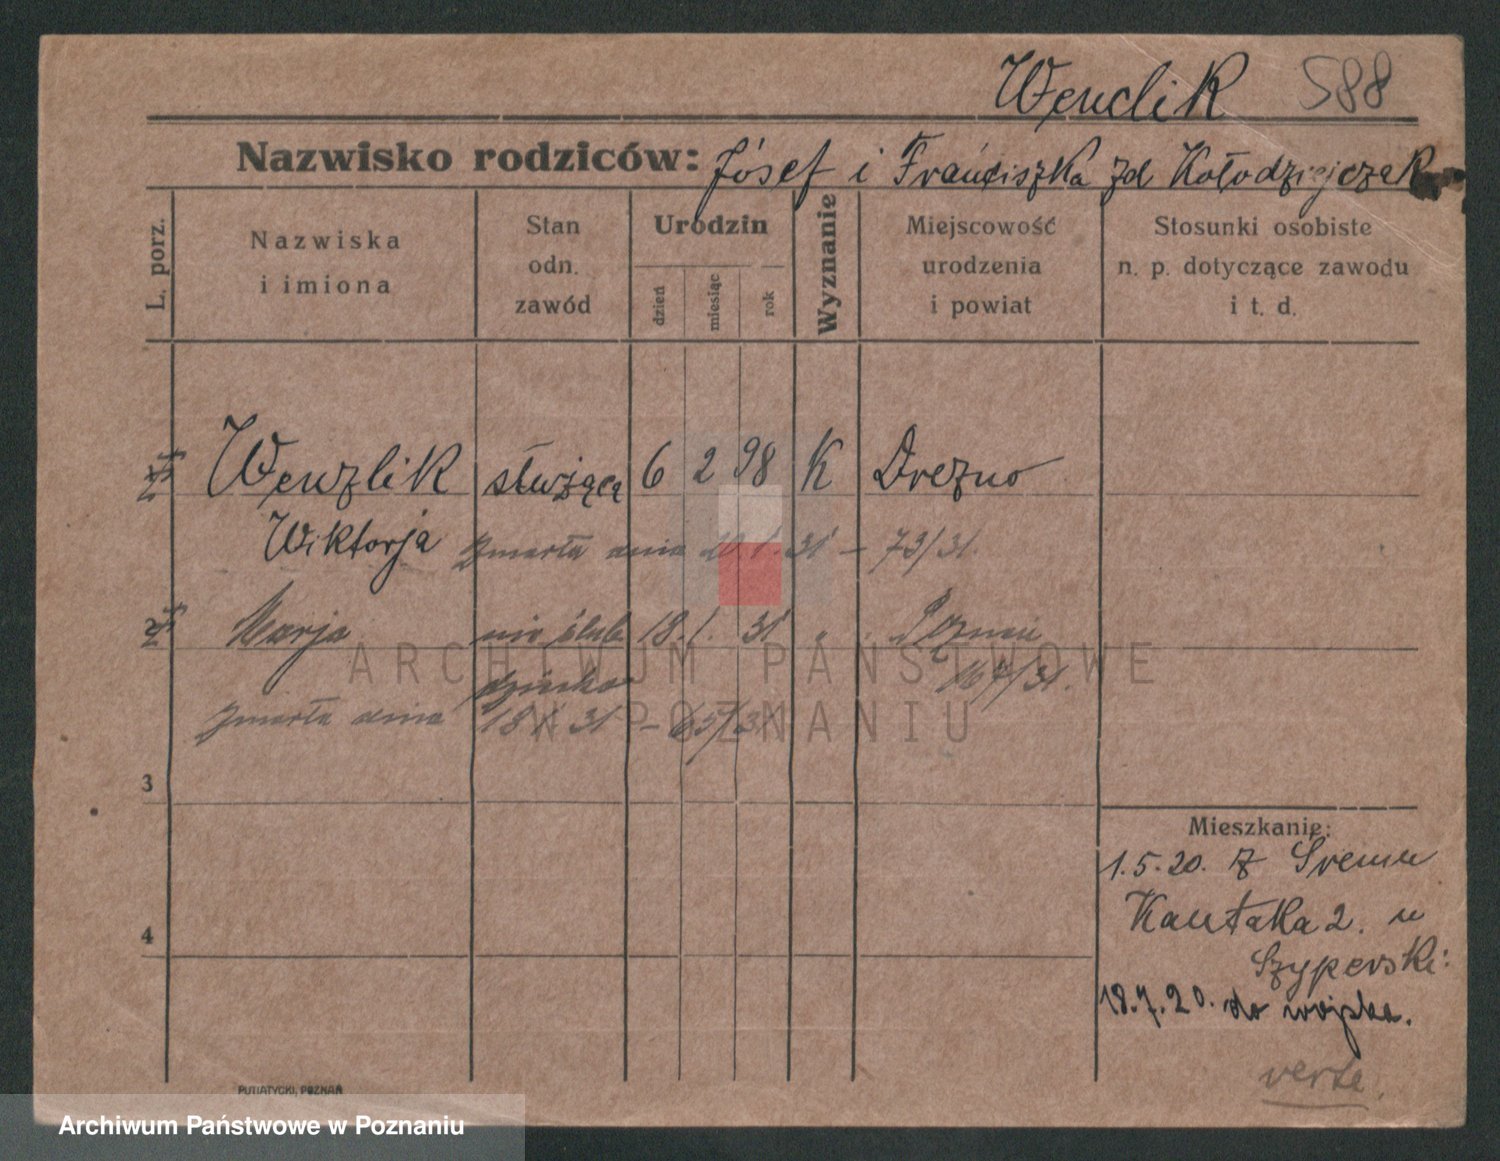 Wenclik 588
Nazwisko rodziców: Józef i Franciszka zd Kołodziejczak
L. porz.
Nazwiska i imiona
Stan odn. zawód
Urodzin
dzień
miesiąc
rok
Wyznanie
Miejscowość urodzenia i powiat
Stosunki osobiste n. p. dotyczące zawodu i t. d.
Wenzlik służąca 6 2 98 K Drezno
Wiktorja zmarła dnia 31 – 73/31.
2 Marja nieślub 18. 1. 31 " Poznań
dziecko 167/31.
zmarła dnia 18 31 – 65/31
3
4
Mieszkanie:
1.5.20. z Śremu
Kantaka 2. u
Szyperski:
18.7.20. do wojska.
verte.
PUTIATYCKI, POZNAŃ
ARCHIWUM PAŃSTWOWE
W POZNANIU
Archiwum Państwowe w Poznaniu